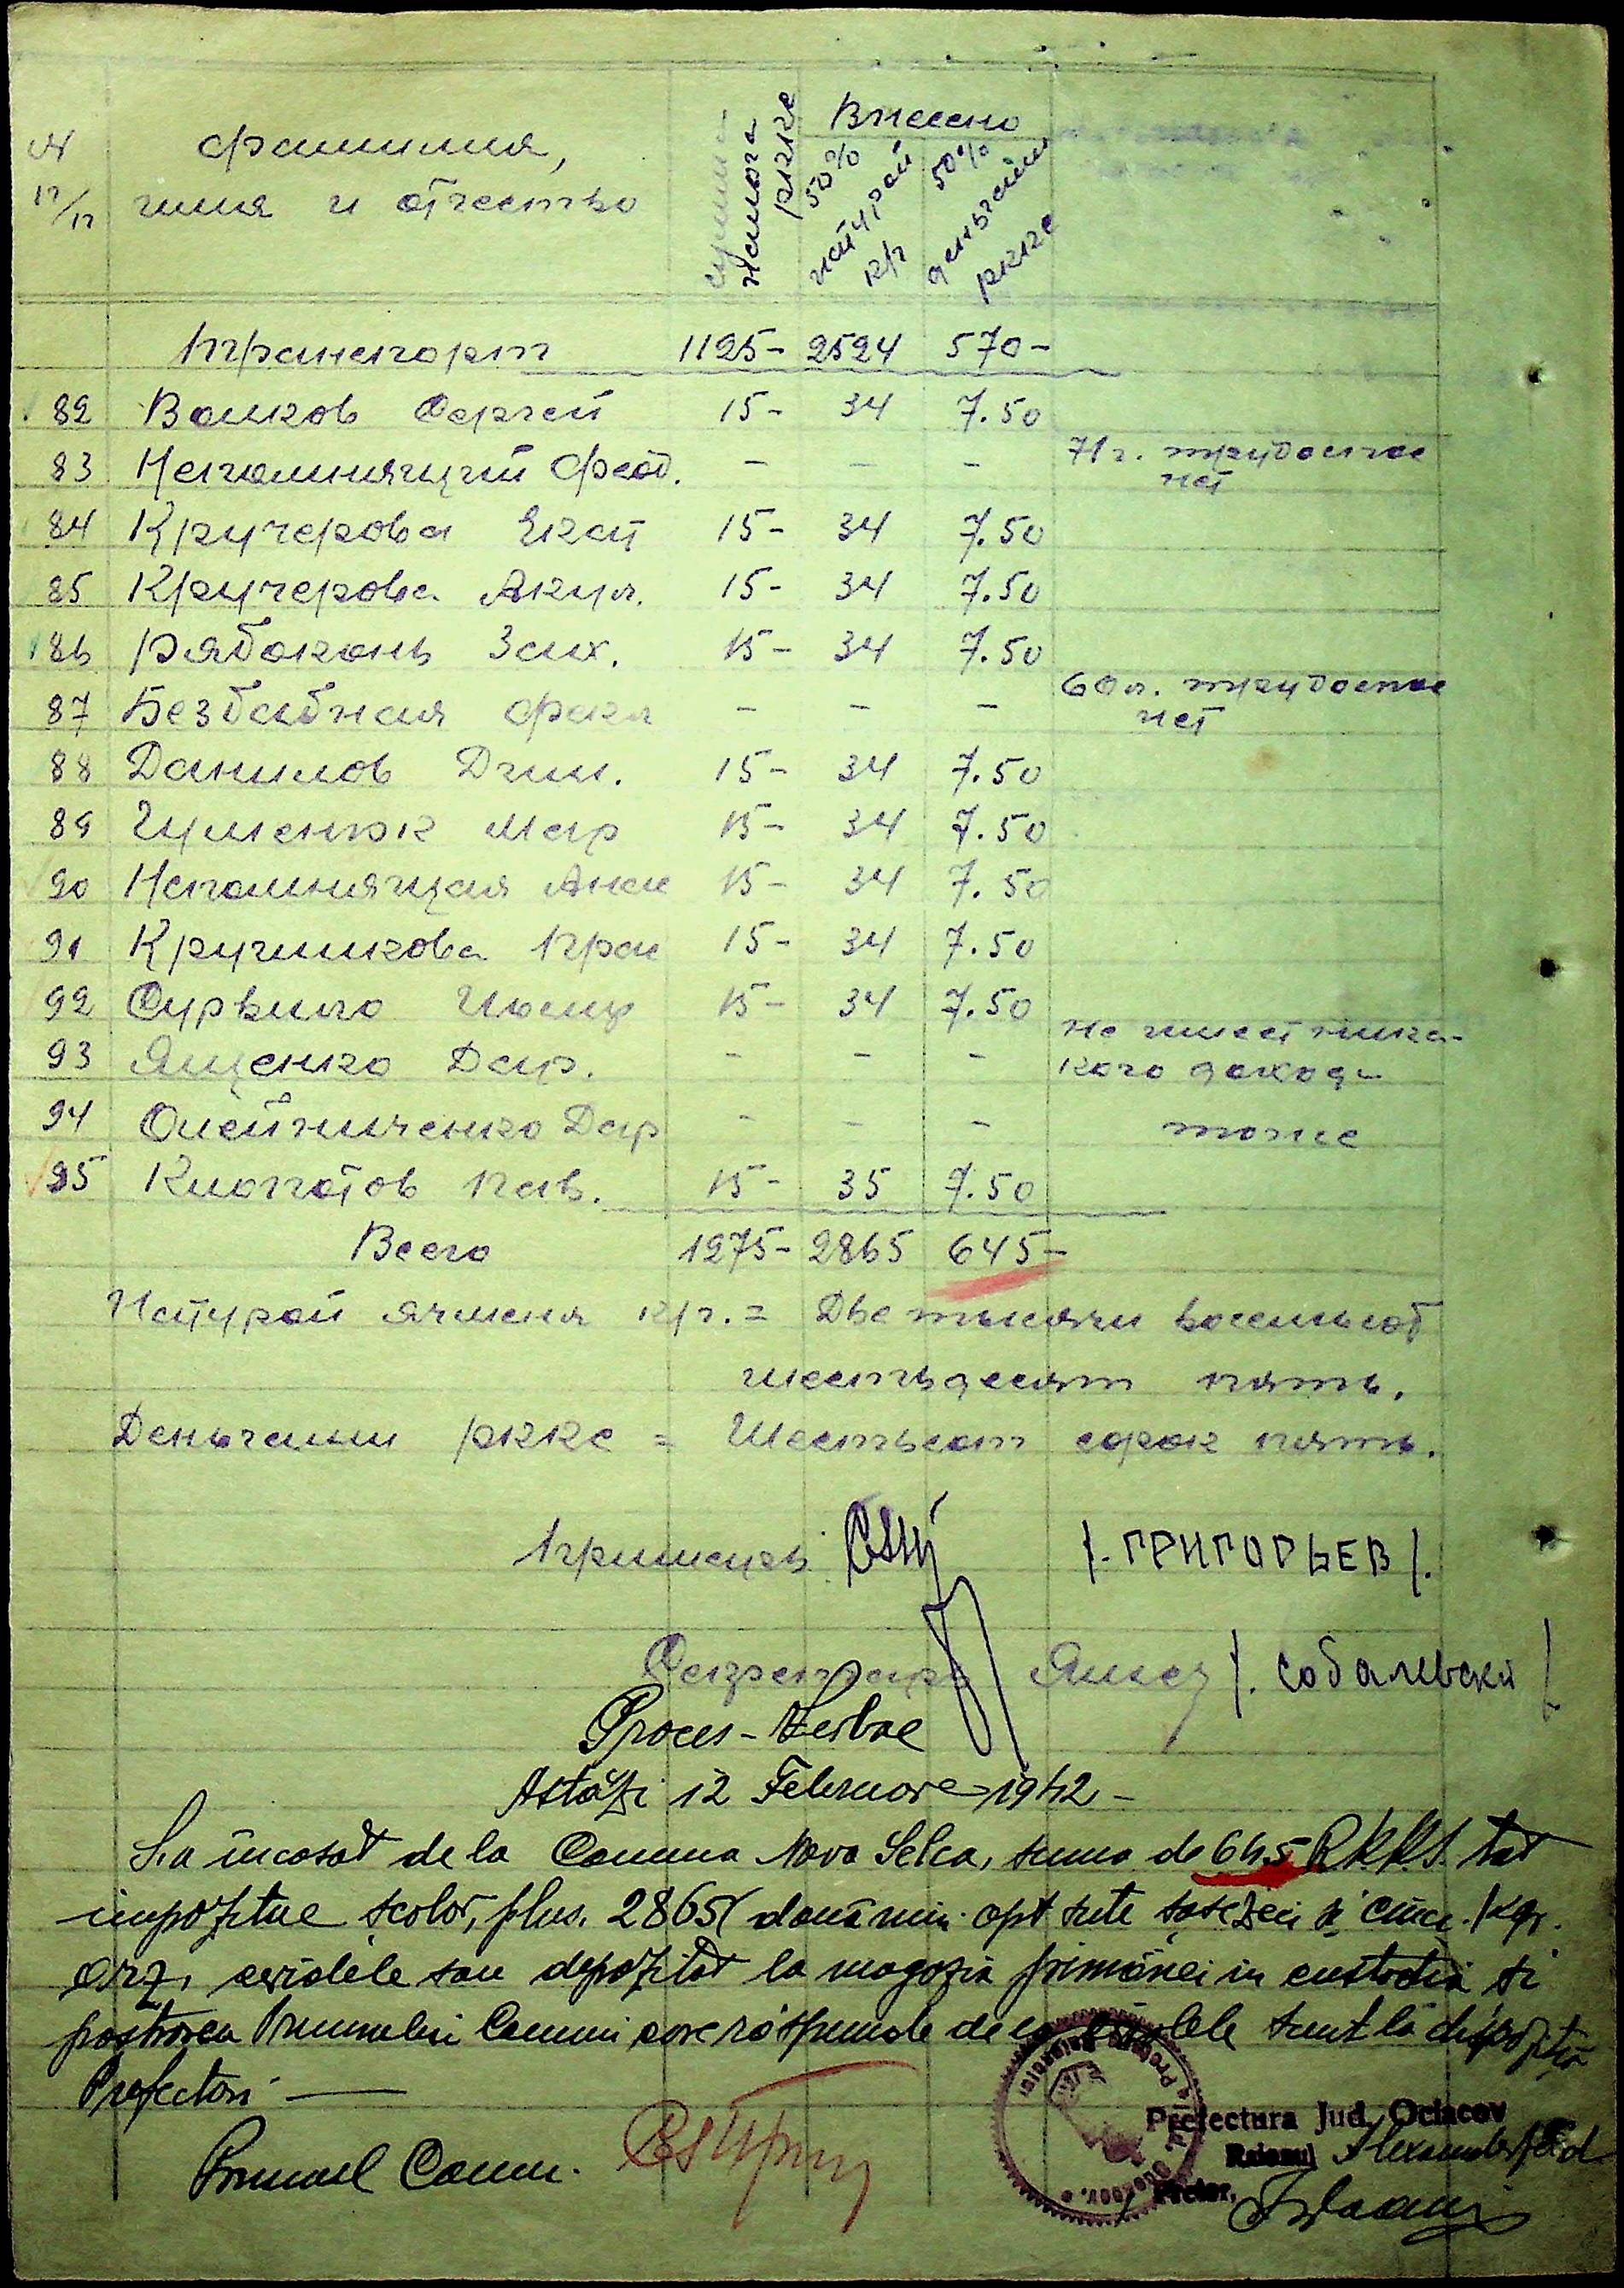 № п/п
Фамилия, имя и отчество
сумма налога ркке
Внесено
50% натурой к/г
50% деньгами ркке
Транспорт 1125- 2524 570-
82 Волков Сергей 15- 34 7.50
83 Непомнящий Феод. - - - 71 г. трудоспос нет
84 Кручерова Екат 15- 34 7.50
85 Кручерова Акул. 15- 34 7.50
86 Рябоконь Зах. 15- 34 7.50
87 Безбабная Фекл - - - 60 л. трудоспос нет
88 Данилов Дмит. 15- 34 7.50
89 Гуменюк Мар 15- 34 7.50
90 Непомнящая Анас 15- 34 7.50
91 Кручинкова Прас 15- 34 7.50
92 Сурвило 15- 34 7.50
93 Ященко Дар. - - - не имеет ника-
кого дохода
94 Олейниченко Дар - - - тоже
95 Клопотов Пав. 15- 35 7.50
Всего 1275- 2865 645-
Натурой ячменя к/г. = Две тысячи восемьсот
шестьдесят пять.
Деньгами ркке = Шестьсот сорок пять.
Примарь /. ГРИГОРЬЕВ /.
Секретарь /. Собалевски /
Proces-Verbal
Astăzi 12 Februare 1942 -
S'a incasat de la Comuna Nova Selca, suma de 645 RKKS. tat
impozitul scolar, plus. 2865 ( două mii opt sute șasezeci și cinci. ) kgr.
orz, cerialele sau depozitat la magazia primăriei in custodia si
pastrarea Primarului Comuni care răspunde de ele sunt la dispoziția
Prefecturi
Primarul Comu.
Prefectura Jud. Oceacov
Raionul Alexanderfeld
Pretor,